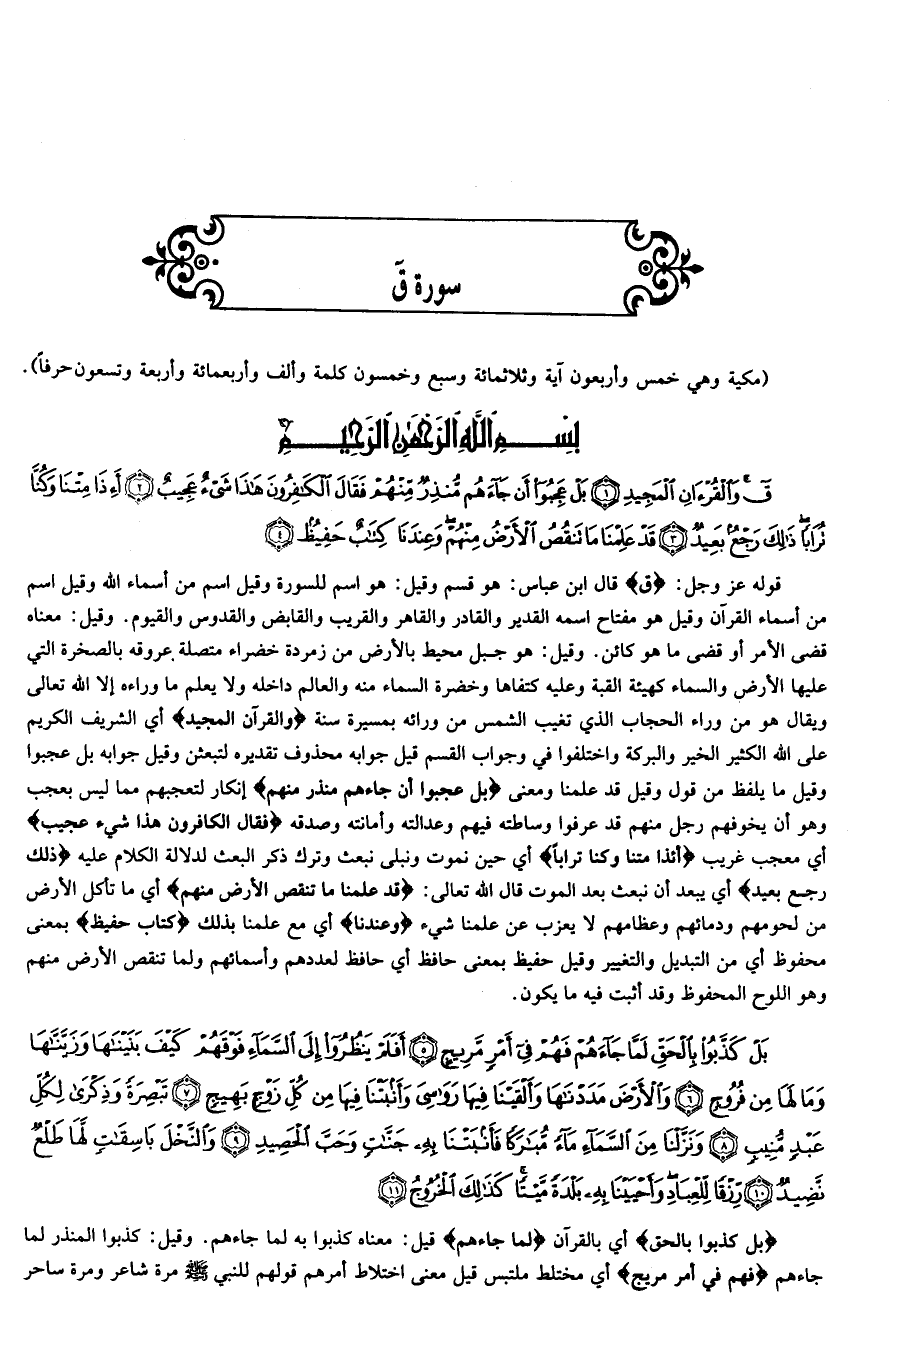 سورة قۤ
(مكية وهي خمس وأربعون آية وثلاثمائة وسبع وخمسون كلمة وألف وأربعمائة وأربعة وتسعون حرفاً).
بِسْمِ ٱللَّهِ ٱلرَّحْمَٰنِ ٱلرَّحِيمِ
قٓ ۚ وَٱلْقُرْءَانِ ٱلْمَجِيدِ ﴿١﴾ بَلْ عَجِبُوٓا۟ أَن جَآءَهُم مُّنذِرٌ مِّنْهُمْ فَقَالَ ٱلْكَٰفِرُونَ هَٰذَا شَىْءٌ عَجِيبٌ ﴿٢﴾ أَءِذَا مِتْنَا وَكُنَّا
تُرَابًا ۖ ذَٰلِكَ رَجْعٌۢ بَعِيدٌ ﴿٣﴾ قَدْ عَلِمْنَا مَا تَنقُصُ ٱلْأَرْضُ مِنْهُمْ ۖ وَعِندَنَا كِتَٰبٌ حَفِيظٌۢ ﴿٤﴾
قوله عز وجل: ﴿ق﴾ قال ابن عباس: هو قسم وقيل: هو اسم للسورة وقيل اسم من أسماء الله وقيل اسم
من أسماء القرآن وقيل هو مفتاح اسمه القدير والقادر والقاهر والقريب والقابض والقدوس والقيوم. وقيل: معناه
قضى الأمر أو قضى ما هو كائن. وقيل: هو جبل محيط بالأرض من زمردة خضراء متصلة عروقه بالصخرة التي
عليها الأرض والسماء كهيئة القبة وعليه كتفاها وخضرة السماء منه والعالم داخله ولا يعلم ما وراءه إلا الله تعالى
ويقال هو من وراء الحجاب الذي تغيب الشمس من ورائه بمسيرة سنة ﴿والقرآن المجيد﴾ أي الشريف الكريم
على الله الكثير الخير والبركة واختلفوا في وجواب القسم قيل جوابه محذوف تقديره لتبعثن وقيل جوابه بل عجبوا
وقيل ما يلفظ من قول وقيل قد علمنا ومعنى ﴿بل عجبوا أن جاءهم منذر منهم﴾ إنكار لتعجبهم مما ليس بعجب
وهو أن يخوفهم رجل منهم قد عرفوا وساطته فيهم وعدالته وأمانته وصدقه ﴿فقال الكافرون هذا شيء عجيب﴾
أي معجب غريب ﴿أئذا متنا وكنا تراباً﴾ أي حين نموت ونبلى نبعث وترك ذكر البعث لدلالة الكلام عليه ﴿ذلك
رجع بعيد﴾ أي يبعد أن نبعث بعد الموت قال الله تعالى: ﴿قد علمنا ما تنقص الأرض منهم﴾ أي ما تأكل الأرض
من لحومهم ودمائهم وعظامهم لا يعزب عن علمنا شيء ﴿وعندنا﴾ أي مع علمنا بذلك ﴿كتاب حفيظ﴾ بمعنى
محفوظ أي من التبديل والتغيير وقيل حفيظ بمعنى حافظ أي حافظ لعددهم وأسمائهم ولما تنقص الأرض منهم
وهو اللوح المحفوظ وقد أثبت فيه ما يكون.
بَلْ كَذَّبُوا۟ بِٱلْحَقِّ لَمَّا جَآءَهُمْ فَهُمْ فِىٓ أَمْرٍ مَّرِيجٍ ﴿٥﴾ أَفَلَمْ يَنظُرُوٓا۟ إِلَى ٱلسَّمَآءِ فَوْقَهُمْ كَيْفَ بَنَيْنَٰهَا وَزَيَّنَّٰهَا
وَمَا لَهَا مِن فُرُوجٍ ﴿٦﴾ وَٱلْأَرْضَ مَدَدْنَٰهَا وَأَلْقَيْنَا فِيهَا رَوَٰسِىَ وَأَنۢبَتْنَا فِيهَا مِن كُلِّ زَوْجٍۭ بَهِيجٍ ﴿٧﴾ تَبْصِرَةً وَذِكْرَىٰ لِكُلِّ
عَبْدٍ مُّنِيبٍ ﴿٨﴾ وَنَزَّلْنَا مِنَ ٱلسَّمَآءِ مَآءً مُّبَٰرَكًا فَأَنۢبَتْنَا بِهِۦ جَنَّٰتٍ وَحَبَّ ٱلْحَصِيدِ ﴿٩﴾ وَٱلنَّخْلَ بَاسِقَٰتٍ لَّهَا طَلْعٌ
نَّضِيدٌ ﴿١٠﴾ رِّزْقًا لِّلْعِبَادِ ۖ وَأَحْيَيْنَا بِهِۦ بَلْدَةً مَّيْتًا ۚ كَذَٰلِكَ ٱلْخُرُوجُ ﴿١١﴾
﴿بل كذبوا بالحق﴾ أي بالقرآن ﴿لما جاءهم﴾ قيل: معناه كذبوا به لما جاءهم. وقيل: كذبوا المنذر لما
جاءهم ﴿فهم في أمر مريج﴾ أي مختلط ملتبس قيل معنى اختلاط أمرهم قولهم للنبي ﷺ مرة شاعر ومرة ساحر